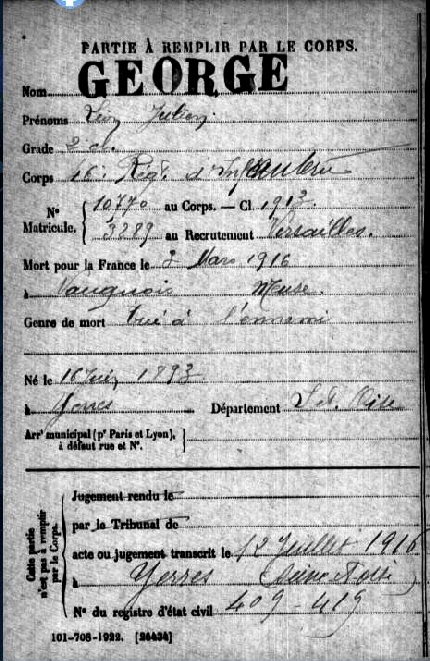 PARTIE À REMPLIR PAR LE CORPS.
Nom GEORGE
Prénoms Léon Julien
Grade 2 cl.
Corps Rég. d'Infanterie
N° Matricule. { 10770 au Corps. — Cl. 1913.
3289 au Recrutement Versailles.
Mort pour la France le Mars 1916
à Vauquois Meuse.
Genre de mort Tué à l'ennemi
Né le 1893
à Département S. et Oise
Arrt municipal (pr Paris et Lyon), à défaut rue et N°. }
Cette partie n'est pas à remplir par le Corps.
Jugement rendu le
par le Tribunal de
acte ou jugement transcrit le 12 Juillet 1916
à Yerres (Seine et Oise)
N° du registre d'état civil 409 - 419
101-708-1922. [24434]